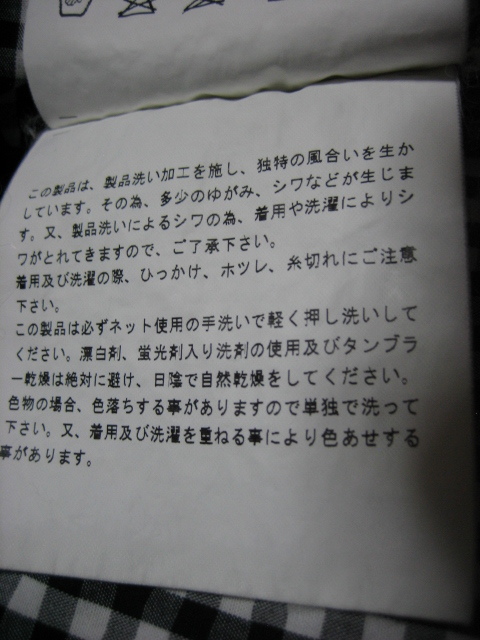 この製品は、製品洗い加工を施し、独特の風合いを生か
しています。その為、多少のゆがみ、シワなどが生じま
す。又、製品洗いによるシワの為、着用や洗濯によりシ
ワがとれてきますので、ご了承下さい。
着用及び洗濯の際、ひっかけ、ホツレ、糸切れにご注意
下さい。
この製品は必ずネット使用の手洗いで軽く押し洗いして
ください。漂白剤、蛍光剤入り洗剤の使用及びタンブラ
ー乾燥は絶対に避け、日陰で自然乾燥をしてください。
色物の場合、色落ちする事がありますので単独で洗って
下さい。又、着用及び洗濯を重ねる事により色あせする
事があります。